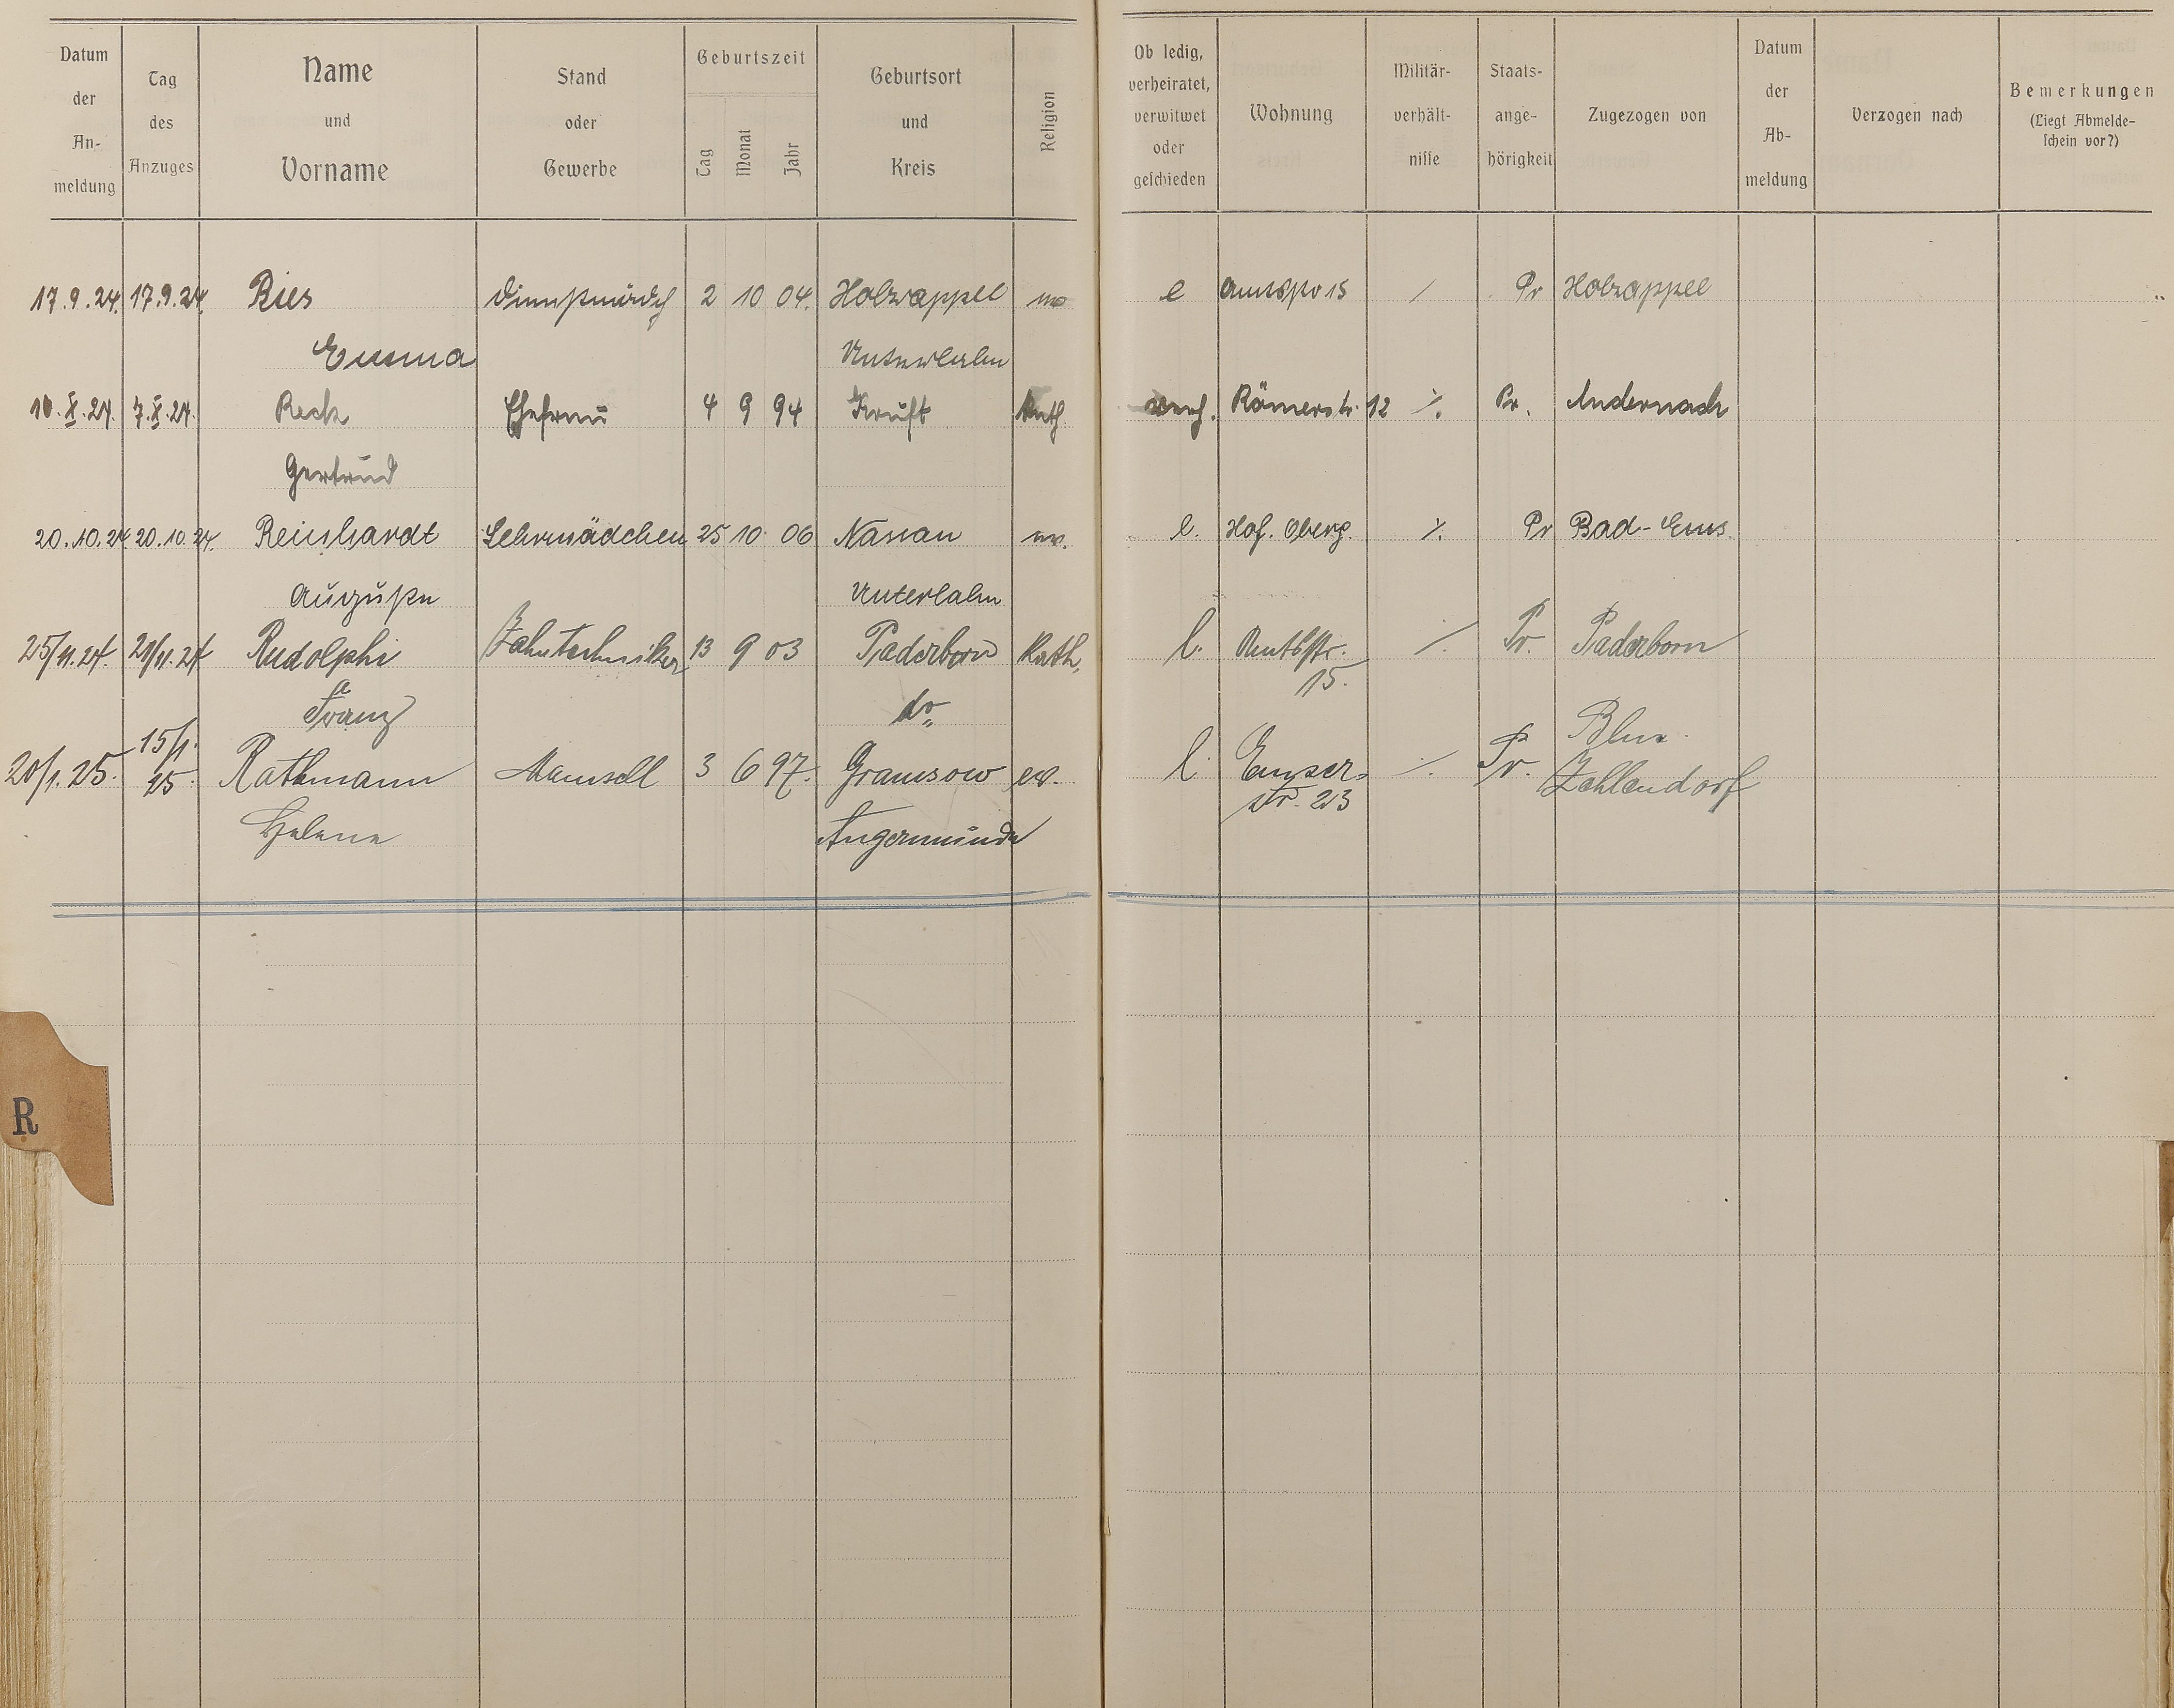 Datum der An-meldung | Tag des Anzuges | Name und Vorname | Stand oder Gewerbe | Geburtszeit Tag Monat Jahr | Geburtsort und Kreis | Religion | Ob ledig, verheiratet, verwitwet oder geschieden | Wohnung | Militär-verhält-nisse | Staats-ange-hörigkeit | Zugezogen von | Datum der Ab-meldung | Verzogen nach | Bemerkungen (Liegt Abmelde-schein vor?)
17.9.24. 17.9.24. Ries Dienstmädch 2 10 04. Holzappel ev l Amtsstr 15 / Pr Holzappel
Emma Unterlahn
10.X.24. 7.X.24. Reck Ehefrau 4 9 94 Kruft Kath. verh. Römerstr. 12 ./. Pr. Andernach
Gertrud
20.10.24 20.10.24. Reinhardt Lehrmädchen 25 10 06 Nassau ev. l. Hof. Oberg. ./. Pr Bad-Ems
Auguste Unterlahn
25/11.24. 21/11.24 Rudolphi Zahntechniker 13 9 03 Paderborn Kath. l. Amtsstr. ./. Pr. Paderborn
15.
Franz do
20/1.25. 15/1. 25. Rathmann Mamsell 3 6 97. Gramsow ev. l. Emser- ./. Pr. Bln.
str. 23 Zehlendorf
Helene Angermünde
R